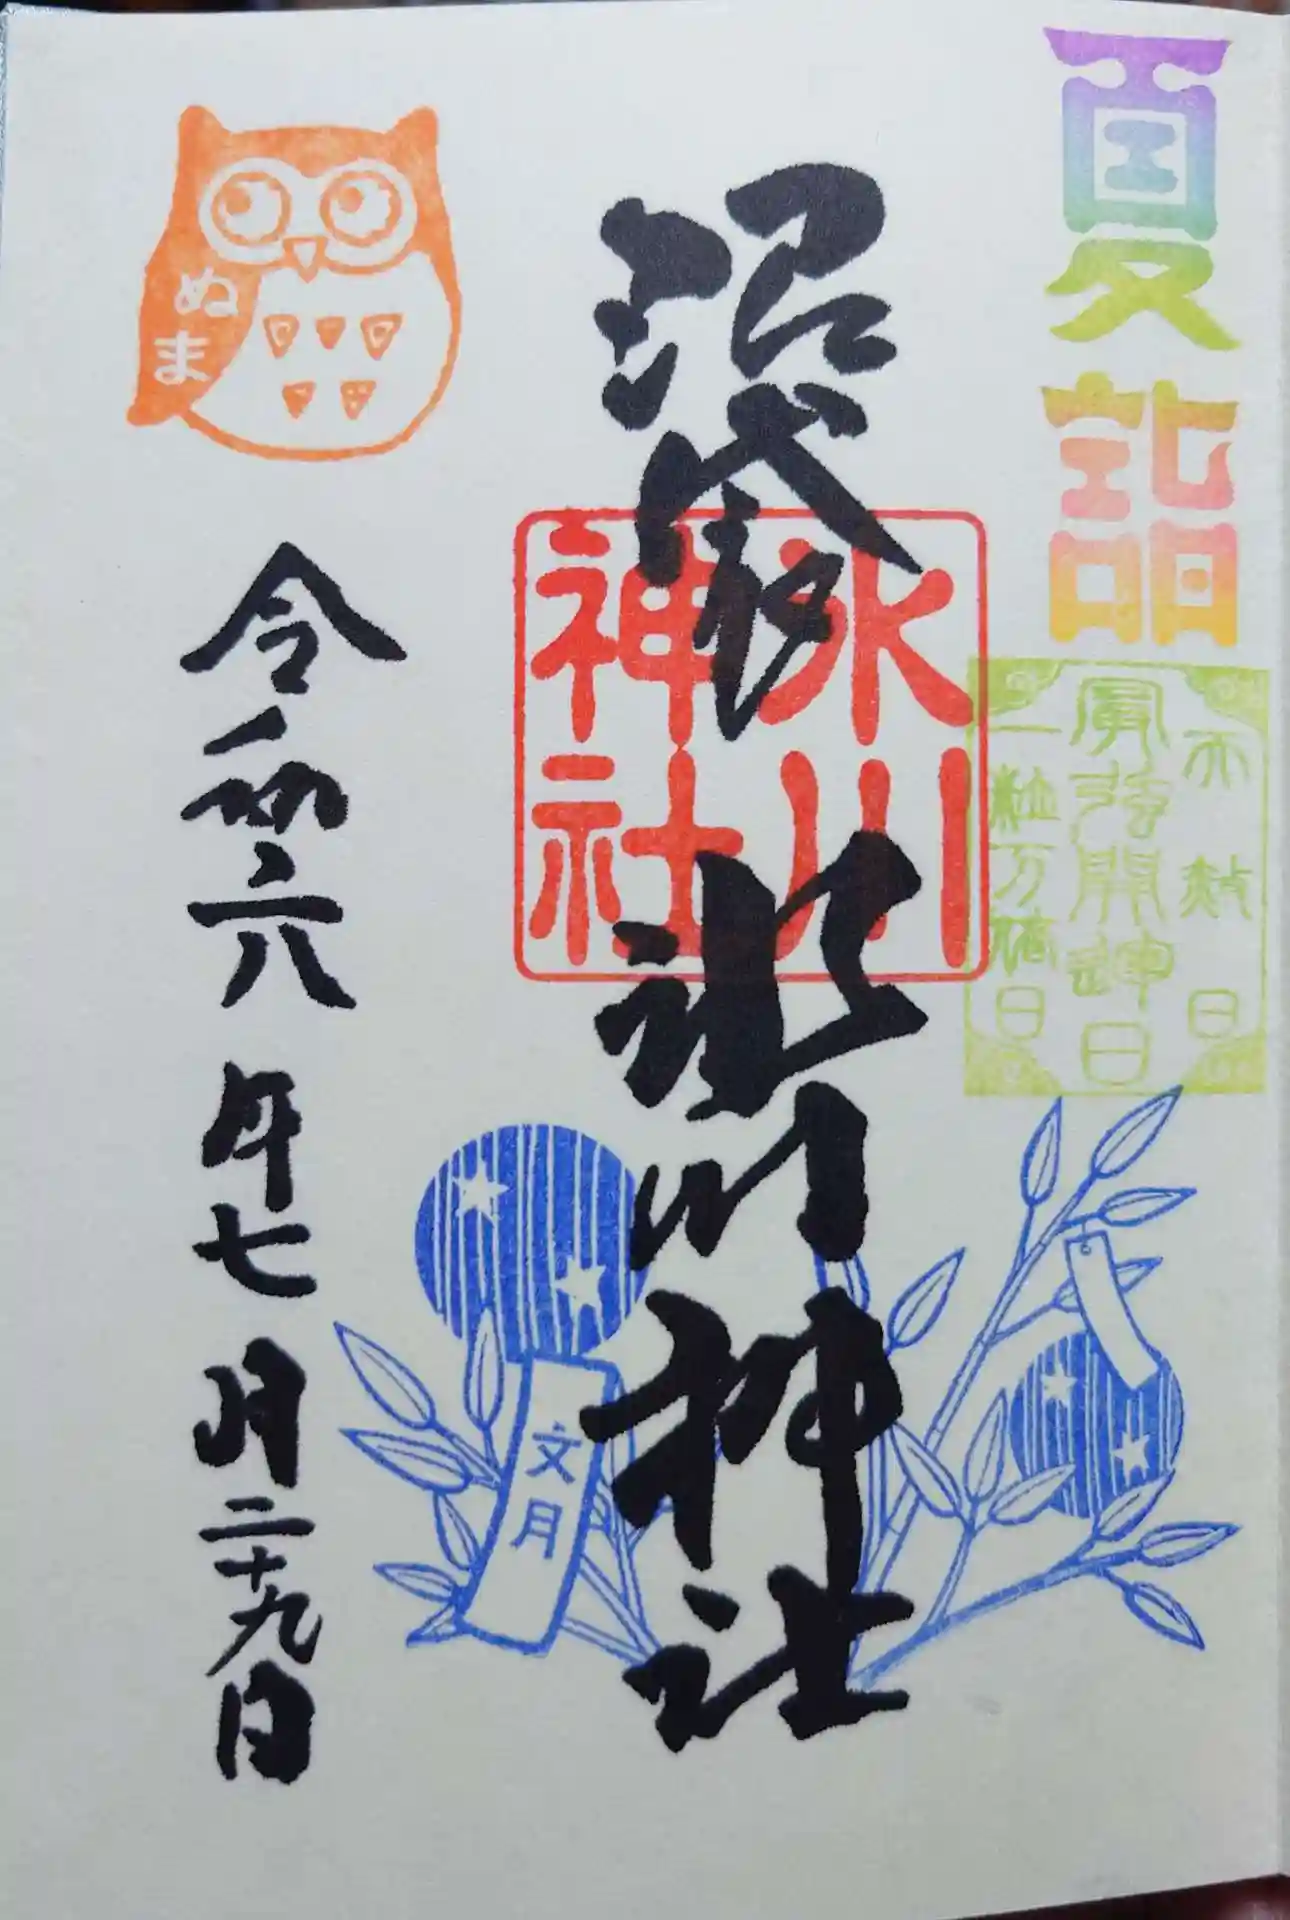 夏詣
天赦日
最強開運日
一粒万倍日
沼袋
氷川神社
氷川
神社
文月
ぬま
令和六年七月二十九日